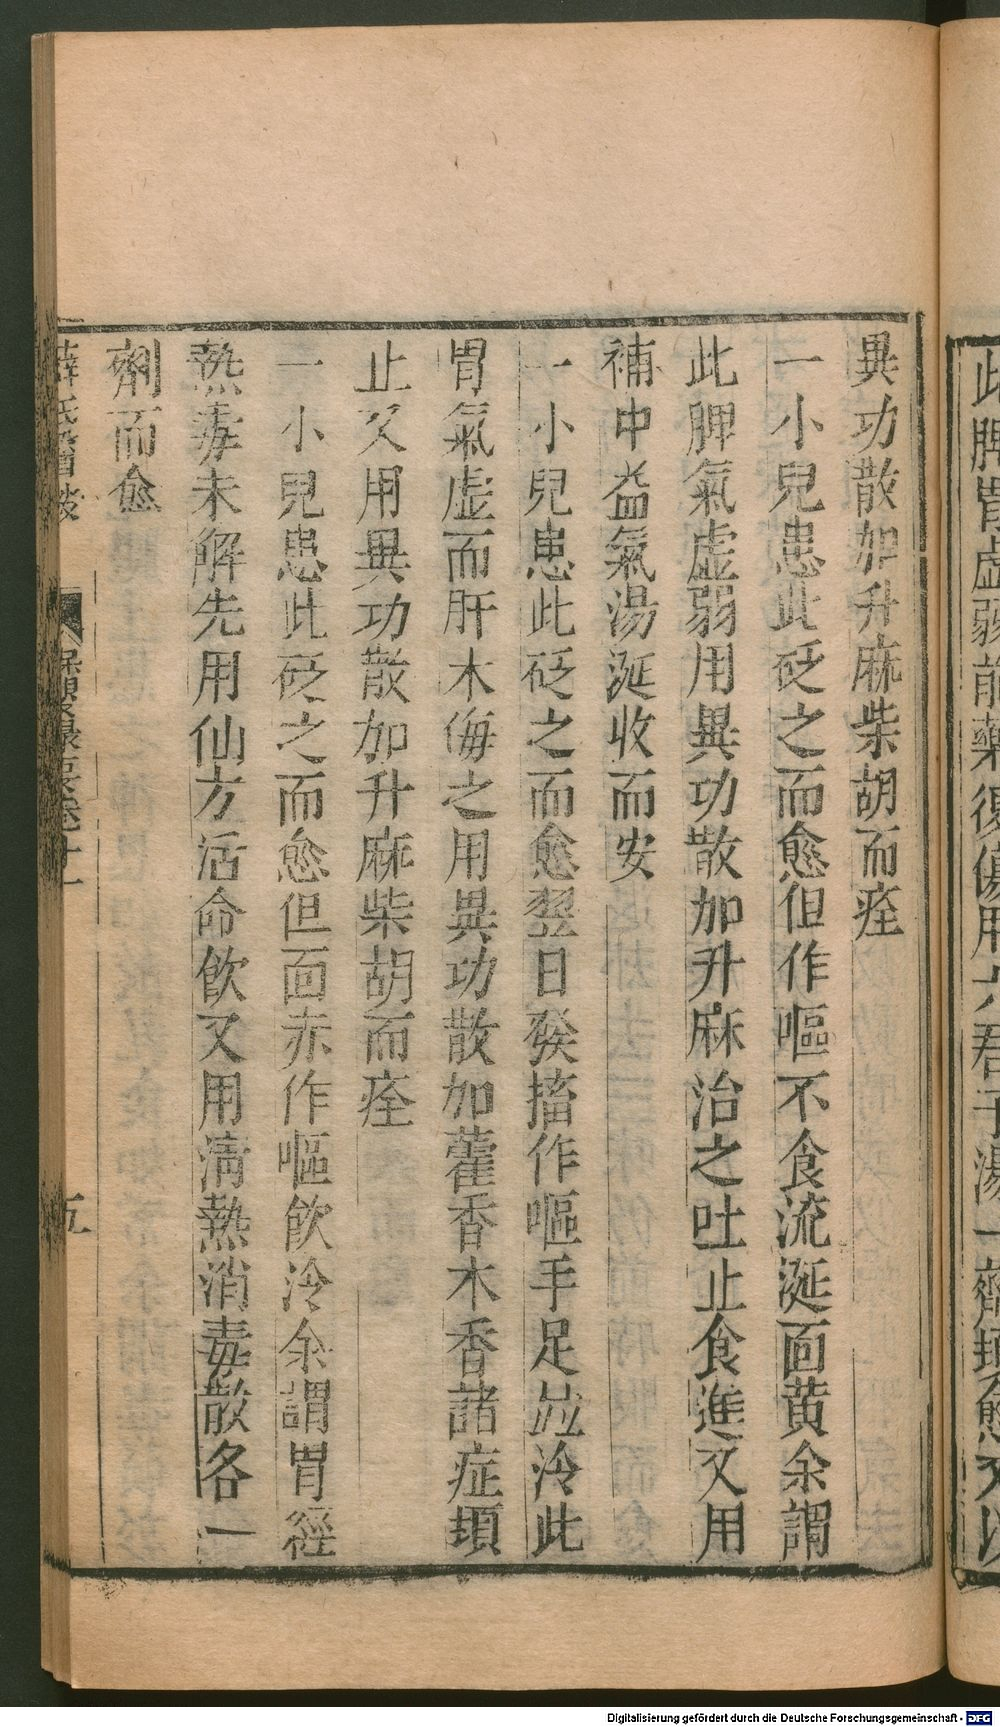 此脾胃虛弱前藥復傷用六君子湯一劑頓愈又以
異功散加升麻柴胡而痊
一小兒患此砭之而愈但作嘔不食流涎面黃余謂
此脾氣虛弱用異功散加升麻治之吐止食進又用
補中益氣湯涎收而安
一小兒患此砭之而愈翌日發搐作嘔手足並冷此
胃氣虛而肝木侮之用異功散加藿香木香諸症頓
止又用異功散加升麻柴胡而痊
一小兒患此砭之而愈但面赤作嘔飲冷余謂胃經
熱毒未解先用仙方活命飲又用清熱消毒散各一
劑而愈
薛氏醫按
保嬰撮要卷十一
五
Digitalisierung gefördert durch die Deutsche Forschungsgemeinschaft - DFG